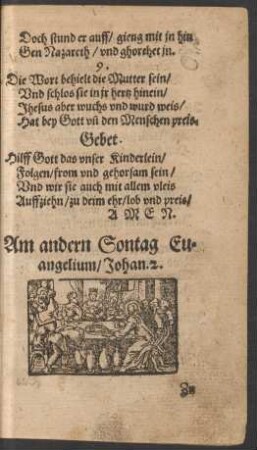 Doch stund er auff/ gieng mit jn hin
Gen Nazareth/ vnd ghorchet jn.
9.
Die Wort behielt die Mutter sein/
Vnd schlos sie in jr hertz hinein/
Jhesus aber wuchs vnd wurd weis/
Hat bey Gott vñ den Menschen preis.
Gebet.
Hilff Gott das vnser Kinderlein/
Folgen/ from vnd gehorsam sein/
Vnd wir sie auch mit allem vleis
Auffziehn/ zu deim ehr/ lob vnd preis/
A M E N.
Am andern Sontag Eu-
angelium/ Johan. 2.
Zu